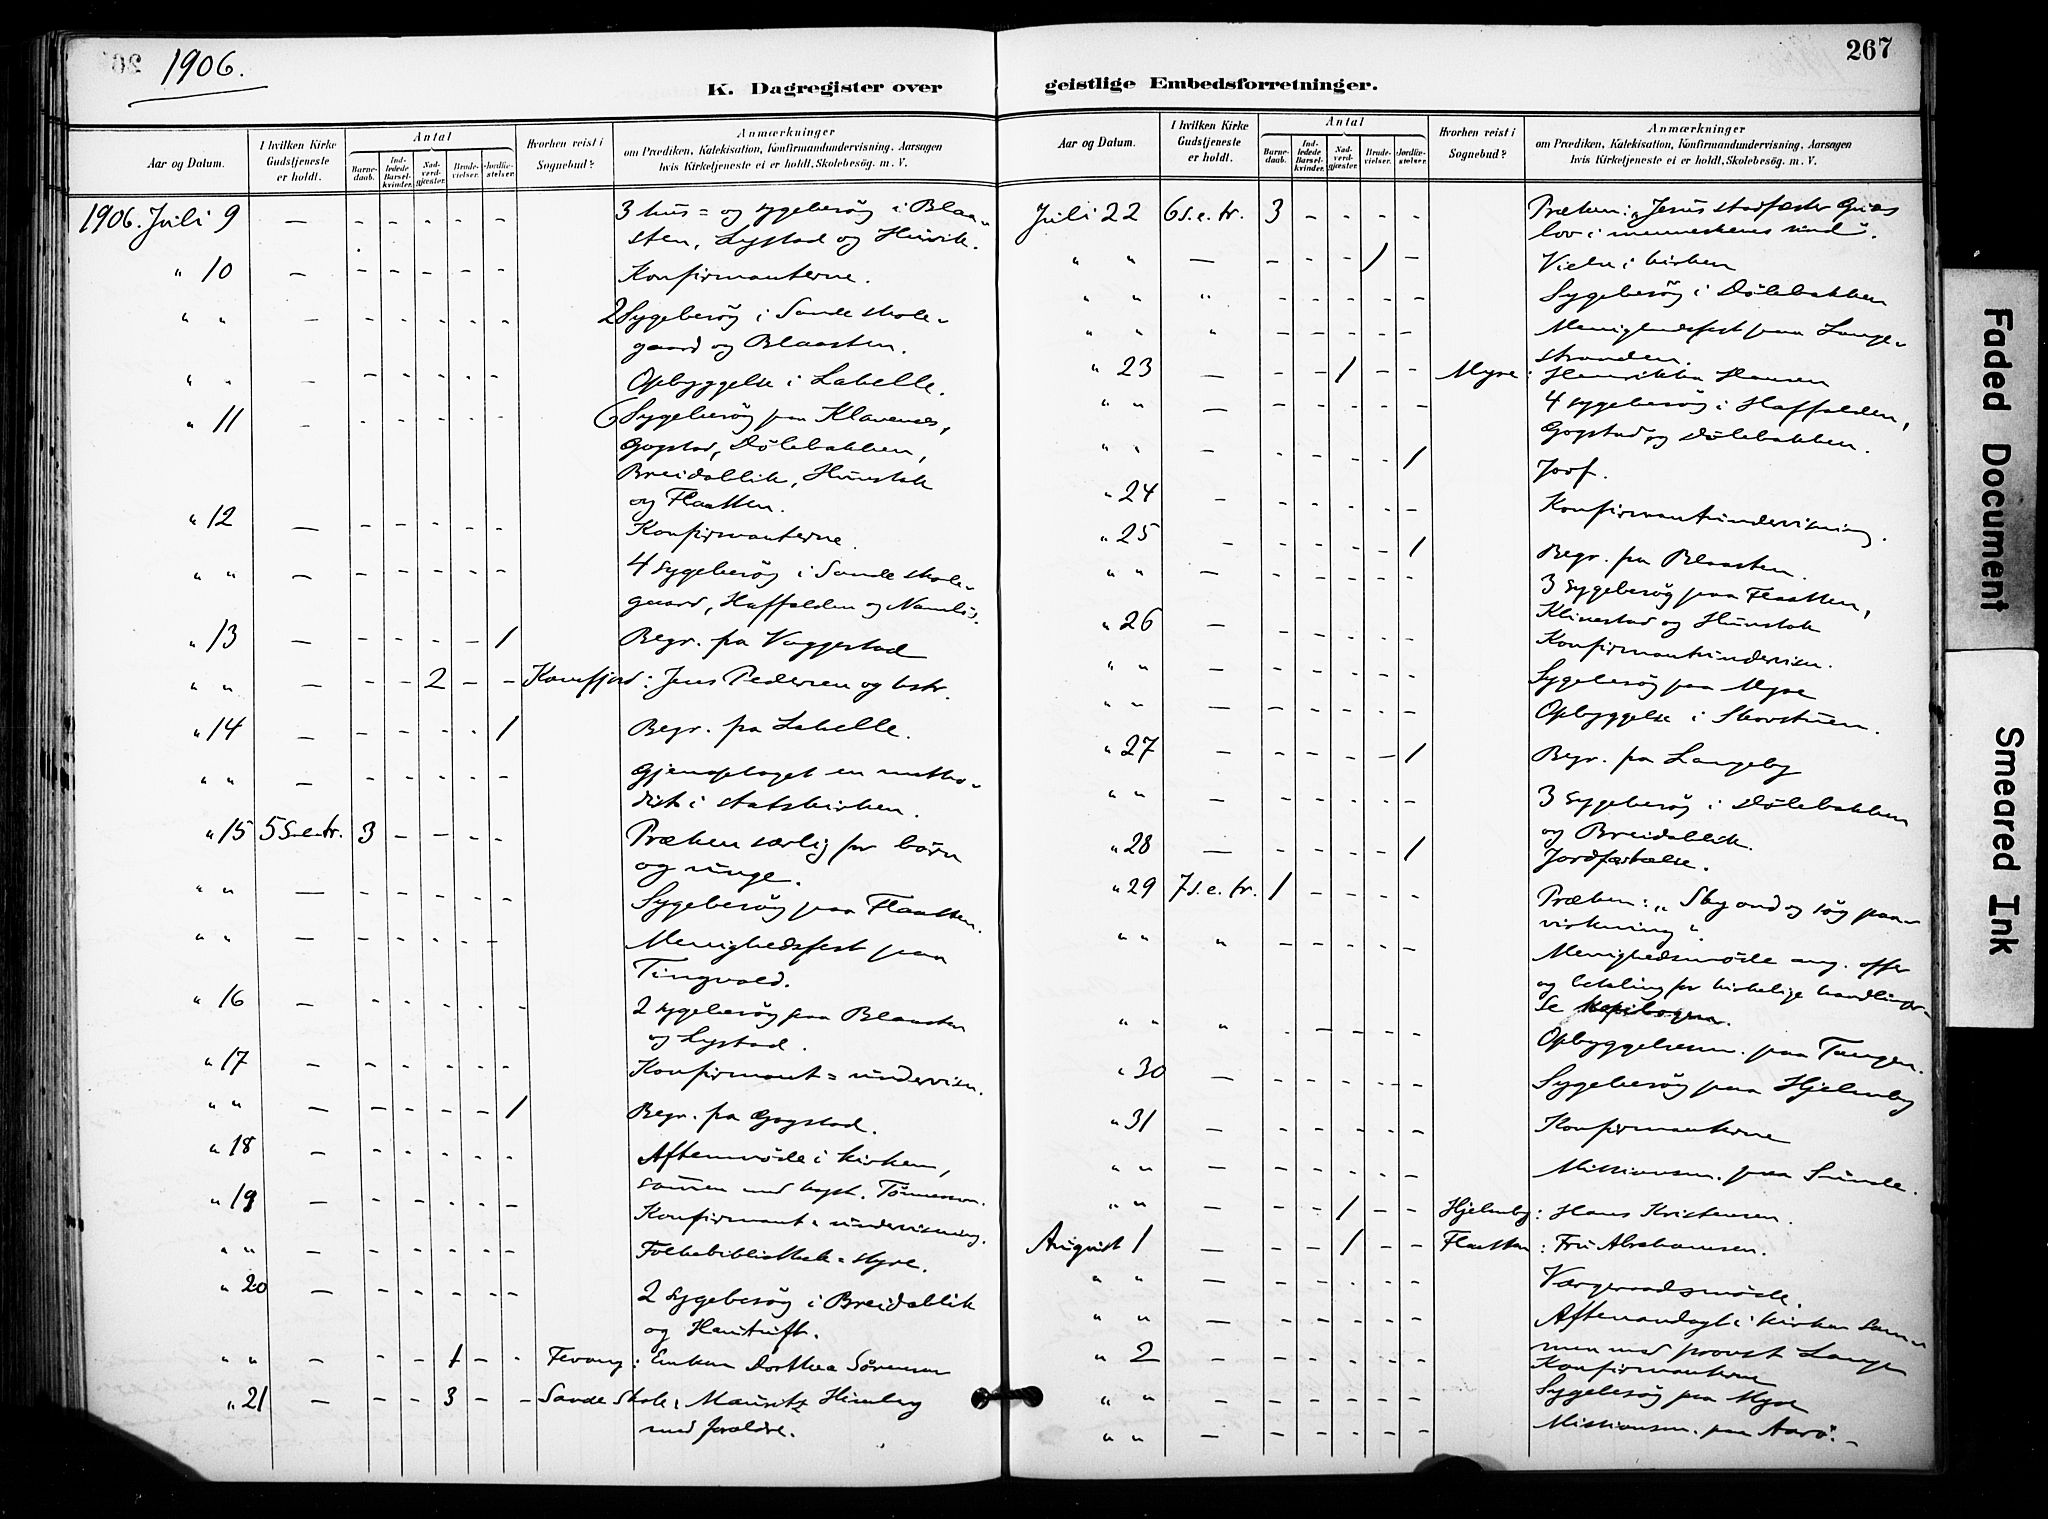 1906.
267
K. Dagregister over geistlige Embedsforretninger.
Aar og Datum.
I hvilken Kirke Gudstjeneste er holdt.
Antal
Barnedaab.
Indledede Barselkvinder.
Nadverdgjæster.
Brudevielser.
Jordfæstelser.
Hvorhen reist i Sognebud?
Anmærkninger
om Prædiken, Katekisation, Konfirmandundervisning, Aarsagen
hvis Kirketjeneste ei er holdt, Skolebesög. m. V.
1906. Juli 9 — - - - - - 3 hus= og sygebesøg i Blaa-
sten, Lystad og Hinvik.
" 10 — - - - - - Konfirmanterne.
" " — - - - - - 2 Sygebesøg i Sande skole-
gaard og Blaasten.
" " — - - - - - Opbyggelse i Labelle.
" 11 - - - - - - 6 Sygebesøg paa Klavenes,
Gogstad, Dölebakken,
Breidablik, Hunstok
og Flaatten.
" 12 — - - - - - Konfirmanterne.
" " — - - - - - 4 sygebesøg i Sande skole-
gaard, Haffalden og
" 13 — - - - - 1 Begr. fra Vaggestad
" " — - - 2 - - Kamfjord: Jens Pedersen og hstr.
" 14 — - - - - 1 Begr. fra Labelle.
" " — - - - - - Gjenoptaget en metho-
dist i statskirken.
" 15 5 S.e.tr. 3 - - - - Præken særlig for børn
og unge.
" " — - - - - - Sygebesøg paa Flaatten.
" " — - - - - - Menighedsfest paa
Tingvold.
" 16 - - - - - - 2 sygebesøg paa Blaasten
og Lystad.
" 17 — - - - - - Konfirmant= undervisn.
" " — - - - - 1 Begr. fra Gogstad.
" 18 — - - - - - Aftenmøde i kirken,
sammen med Tönnesen.
" 19 — - - - - - Konfirmant= undervisning.
" " — - - - - - Folkebibliothek= styre.
" 20 — - - - - - 2 sygebesøg i Breidablik
og
" " — - - 1 - - Fevang: Enken Dorthea Sörensen
" 21 — - - 3 - - Sande Skole: Mauritz Himberg
med foreldre.
Aar og Datum.
I hvilken Kirke Gudstjeneste er holdt.
Antal
Barnedaab.
Indledede Barselkvinder.
Nadverdgjæster.
Brudevielser.
Jordfæstelser.
Hvorhen reist i Sognebud?
Anmærkninger
om Prædiken, Katekisation, Konfirmandundervisning, Aarsagen
hvis Kirketjeneste ei er holdt, Skolebesög. m. V.
Juli 22 6 s.e.tr. 3 - - - - Præken: "Jesus stadfæster Guds
lov i menneskenes sind".
" " — - - - 1 - Vielse i kirken
" " " - - - - - Sygebesøg i Dölebakken
" " " - - - - - Menighedsfest paa Lange-
stranden.
" 23 — - - 1 - - Myre: Henrikka Hansen
" " — - - - - - 4 sygebesøg i Haffalden,
Gogstad og Dölebakken.
" " - - - - - 1 Jordf.
" 24 - - - - - - Konfirmantundervisning.
" 25 - - - - - 1 Begr. fra Blaasten.
" " — - - - - - 3 sygebesøg paa Flaatten,
Klinestad og Hunstok
" 26 — - - - - - Konfirmantundervisn.
" " - - - - - - Sygebesøg paa Myre
" " — - - - - - Opbyggelse i Skovstuen.
" 27 - - - - - 1 Begr. fra Langeby
" " - - - - - - 3 sygebesøg i Dölebakken
og Breidablik.
" 28 — - - - - 1 Jordfæstelse.
" 29 7 s.e.tr. 1 - - - - Præken: "Sky ond og søg paa-
virkning".
" " " - - - - - Menighedsmøde ang. offer
og betaling for kirkelige handlinger-
Se kopibogen.
" " " - - - - - Opbyggelsesm. paa Tangen.
" 30 — - - - - - Sygebesøg paa Hjelmby
" 31 — - - - - - Konfirmanterne
" " — - - - - - Missionsm. paa Sunde.
" " — - - 1 - - Hjelmby: Hans Kristensen.
August 1 — - - 1 - - Flaatten: Fru Abrahamsen.
" " — - - - - - Værgeraadsmøde.
" " — - - - - - Aftenandagt i kirken sam-
men med provst Lange
" 2 — - - - - - Konfirmanterne
" " — - - - - - Sygebesøg paa Myre
" " — - - - - - Missionsm. paa Aarö.
Faded Document
Smeared Ink